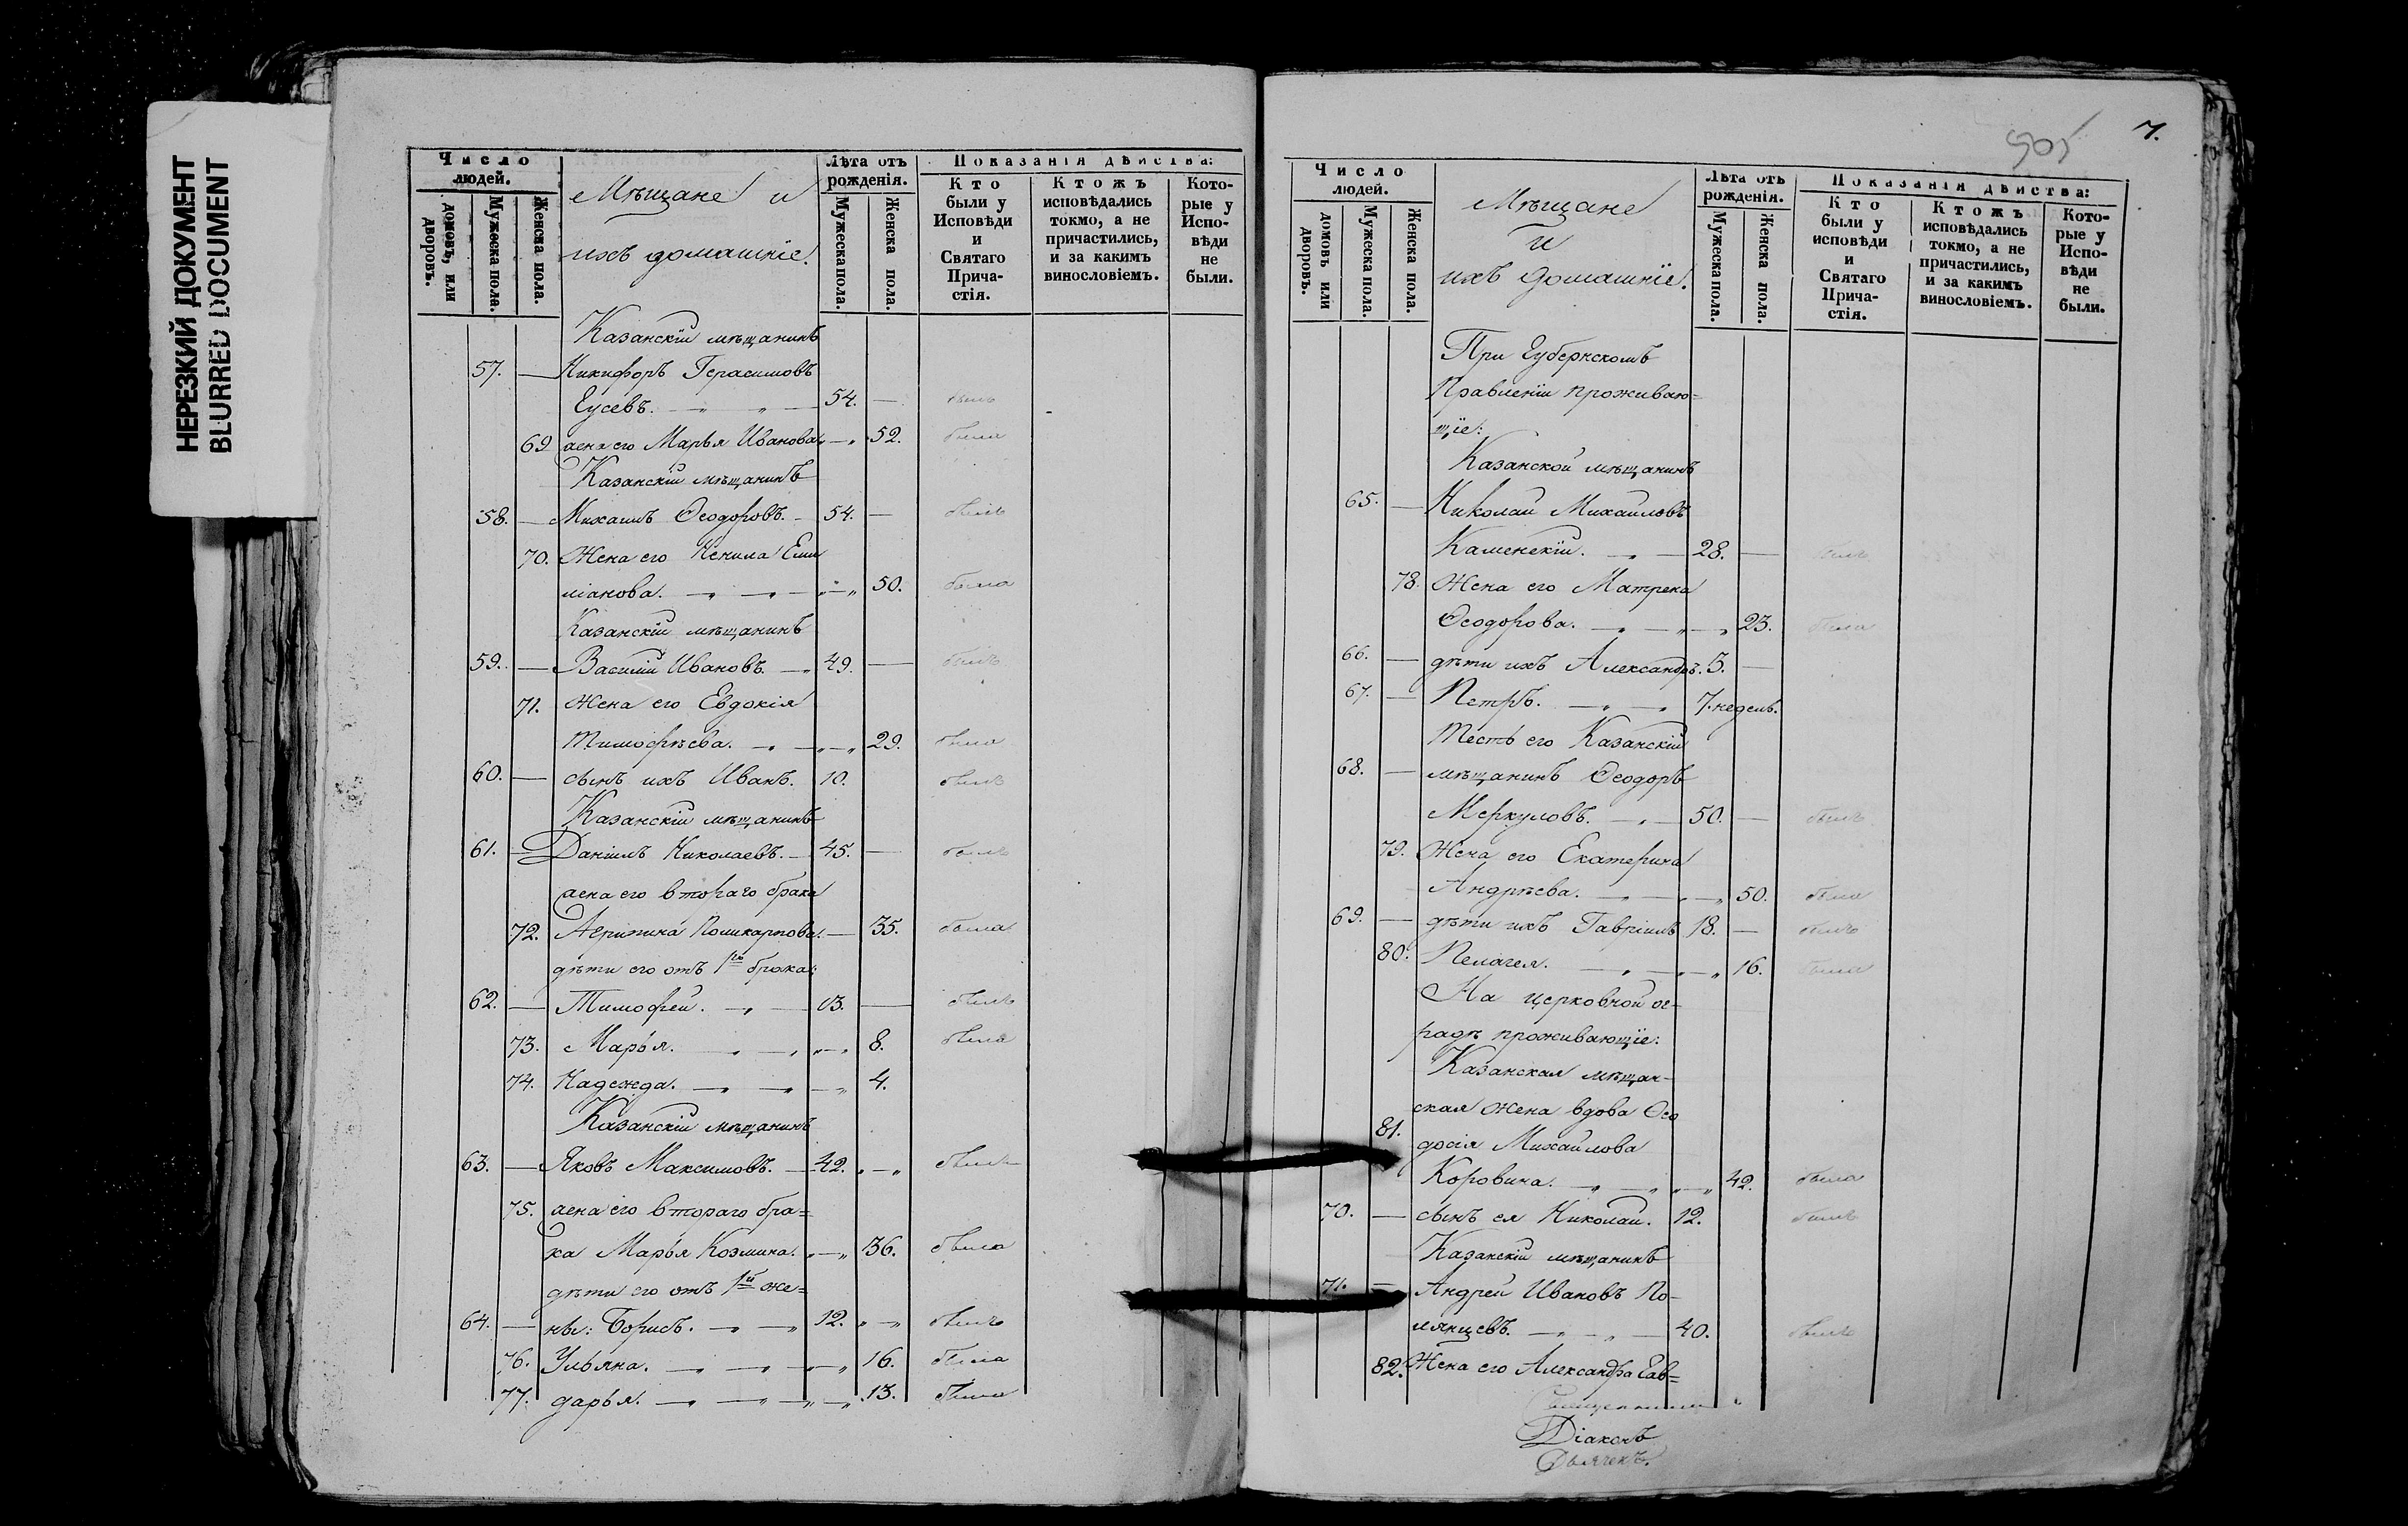 НЕРЕЗКИЙ ДОКУМЕНТ
BLURRED DOCUMENT
Число людей.
домовъ, или дворовъ.
Мужеска пола.
Женска пола.
Мѣщане и
ихъ домашніе.
Лѣта отъ рожденія.
Мужеска пола.
Женска пола.
Показанія дѣйства:
Кто были у Исповѣди и Святаго Прича-стія.
Ктожъ исповѣдались токмо, а не причастились, и за какимъ винословіемъ.
Кото-рые у Испо-вѣди не были.
Казанскій мѣщанинъ
57. — Никифоръ Герасимовъ
Гусевъ. 54. — былъ
69 жена его Марья Иванова 52. была
Казанскій мѣщанинъ
58. — Михаилъ Ѳеодоровъ. 54. — былъ
70. Жена его Ненила Еми
ліанова. 50. была
Казанскій мѣщанинъ
59. — Василій Ивановъ. 49. — былъ
71. Жена его Евдокія
Тимофѣева. 29. была
60. — сынъ ихъ Иванъ. 10. былъ
Казанскій мѣщанинъ
61. — Даніилъ Николаевъ. 45. — былъ
жена его втораго брака
72. Агрипина Поликарпова. — 35. была
дѣти его отъ 1го брака:
62. — Тимофей. 13. — былъ
73. Марья. 8. была
74. Надежда. 4.
Казанскій мѣщанинъ
63. — Яковъ Максимовъ. 42. былъ
75. жена его втораго бра=
ка Марья Козмина. 36. была
дѣти его отъ 1й же=
64. — ны: Борисъ. 12. былъ
76. Ульяна. 16. была
77. дарья. 13. была
505
7.
Число людей.
домовъ или дворовъ.
Мужеска пола.
Женска пола.
Мѣщане
и
ихъ домашніе.
Лѣта отъ рожденія.
Мужеска пола.
Женска пола.
Показанія дѣйства:
Кто были у исповѣди и Святаго Прича-стія.
Ктожъ исповѣдались токмо, а не причастились, и за какимъ винословіемъ.
Кото-рые у Испо-вѣди не были.
При Губернскомъ
Правленіи проживаю=
щіе:
Казанской мѣщанинъ
65. — Николай Михайловъ
Каменскій. 28. — былъ
78. Жена его Матрена
Ѳеодорова. 23. была
66. — дѣти ихъ Александръ. 3. —
67. — Петръ. 7. недель.
Тесть его Казанскій
68. — мѣщанинъ Ѳеодоръ
Меркуловъ. 50. — былъ
79. Жена его Екатерина
Андрѣева. 50. была
69. — дѣти ихъ Гавріилъ 18. — былъ
80. Пелагея. 16. была
На церковной ог-
радѣ проживающіе:
Казанская мѣщан-
ская жена вдова Ѳео
81. досія Михайлова
Коровина. 42. была
70. — сынъ ея Николай. 12. былъ
Казанскій мѣщанинъ
71. — Андрей Ивановъ По-
лянцевъ. 40. былъ
82. Жена его Александра Гав=
Священникъ
Діаконъ
Дьячекъ.